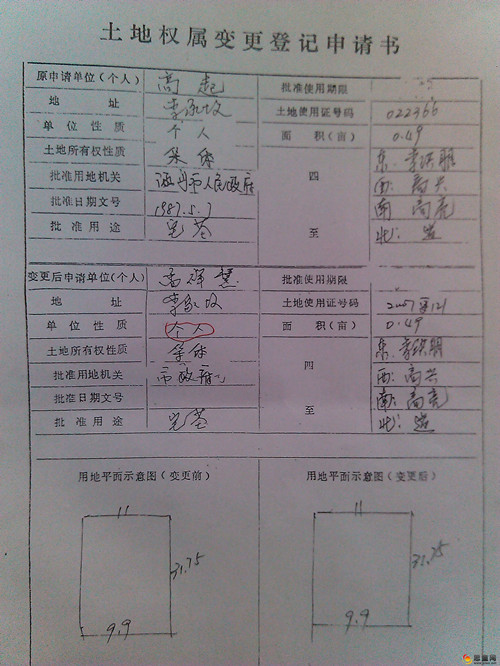 土地权属变更登记申请书
原申请单位(个人) 高起 批准使用期限
地址 李家坟 土地使用证号码 022366
单位性质 个人 面积(亩) 0.49
土地所有权性质 集体 四 东:
批准用地机关 市人民政府 西:高兴
批准日期文号 1987.5.7 南 高亮
批准用途 宅基 至 北:道
变更后申请单位(个人) 高祥慧 批准使用期限
地址 李家坟 土地使用证号码
单位性质 个人 面积(亩) 0.49
土地所有权性质 集体 四 东:
批准用地机关 市政府 西:高兴
批准日期文号 南:高亮
批准用途 宅基 至 北:道
用地平面示意图(变更前) 用地平面示意图(变更后)
31.75 31.75
9.9 9.9